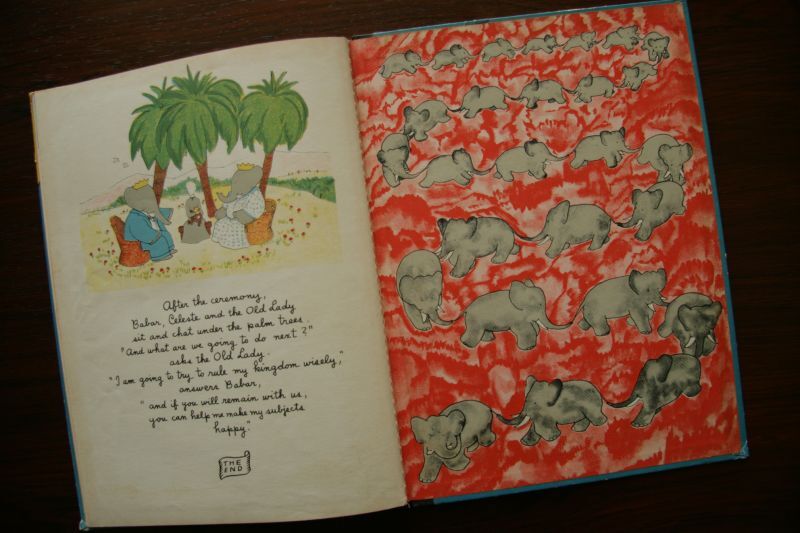 After the ceremony,
Babar, Celeste and the Old Lady
sit and chat under the palm trees.
"And what are we going to do next?"
asks the Old Lady.
"I am going to try to rule my kingdom wisely,"
answers Babar,
"and if you will remain with us,
you can help me make my subjects
happy."
THE
END